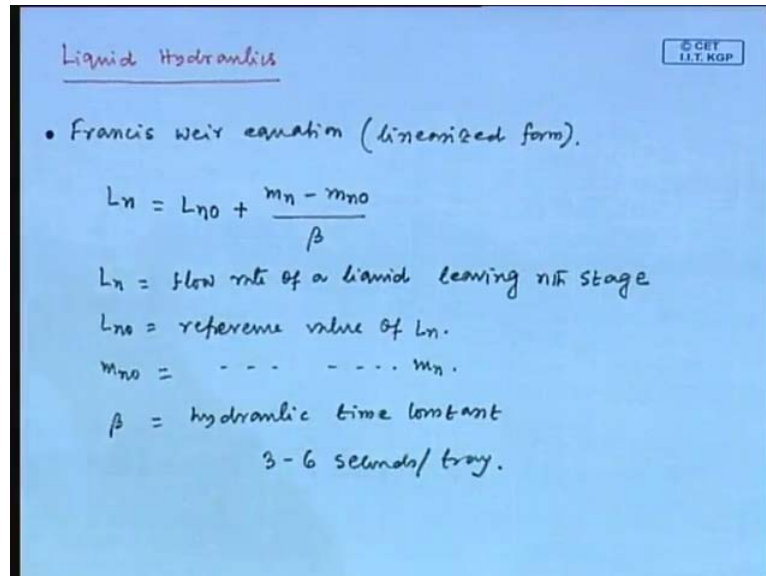 Liquid Hydraulics
© CET
I.I.T. KGP
• Francis weir equation (linearized form).
Ln = Ln0 + (mn - mn0) / β
Ln = flow rate of a liquid leaving nth stage
Ln0 = reference value of Ln.
mn0 = - - - - - - - mn.
β = hydraulic time constant
3 - 6 seconds/ tray.